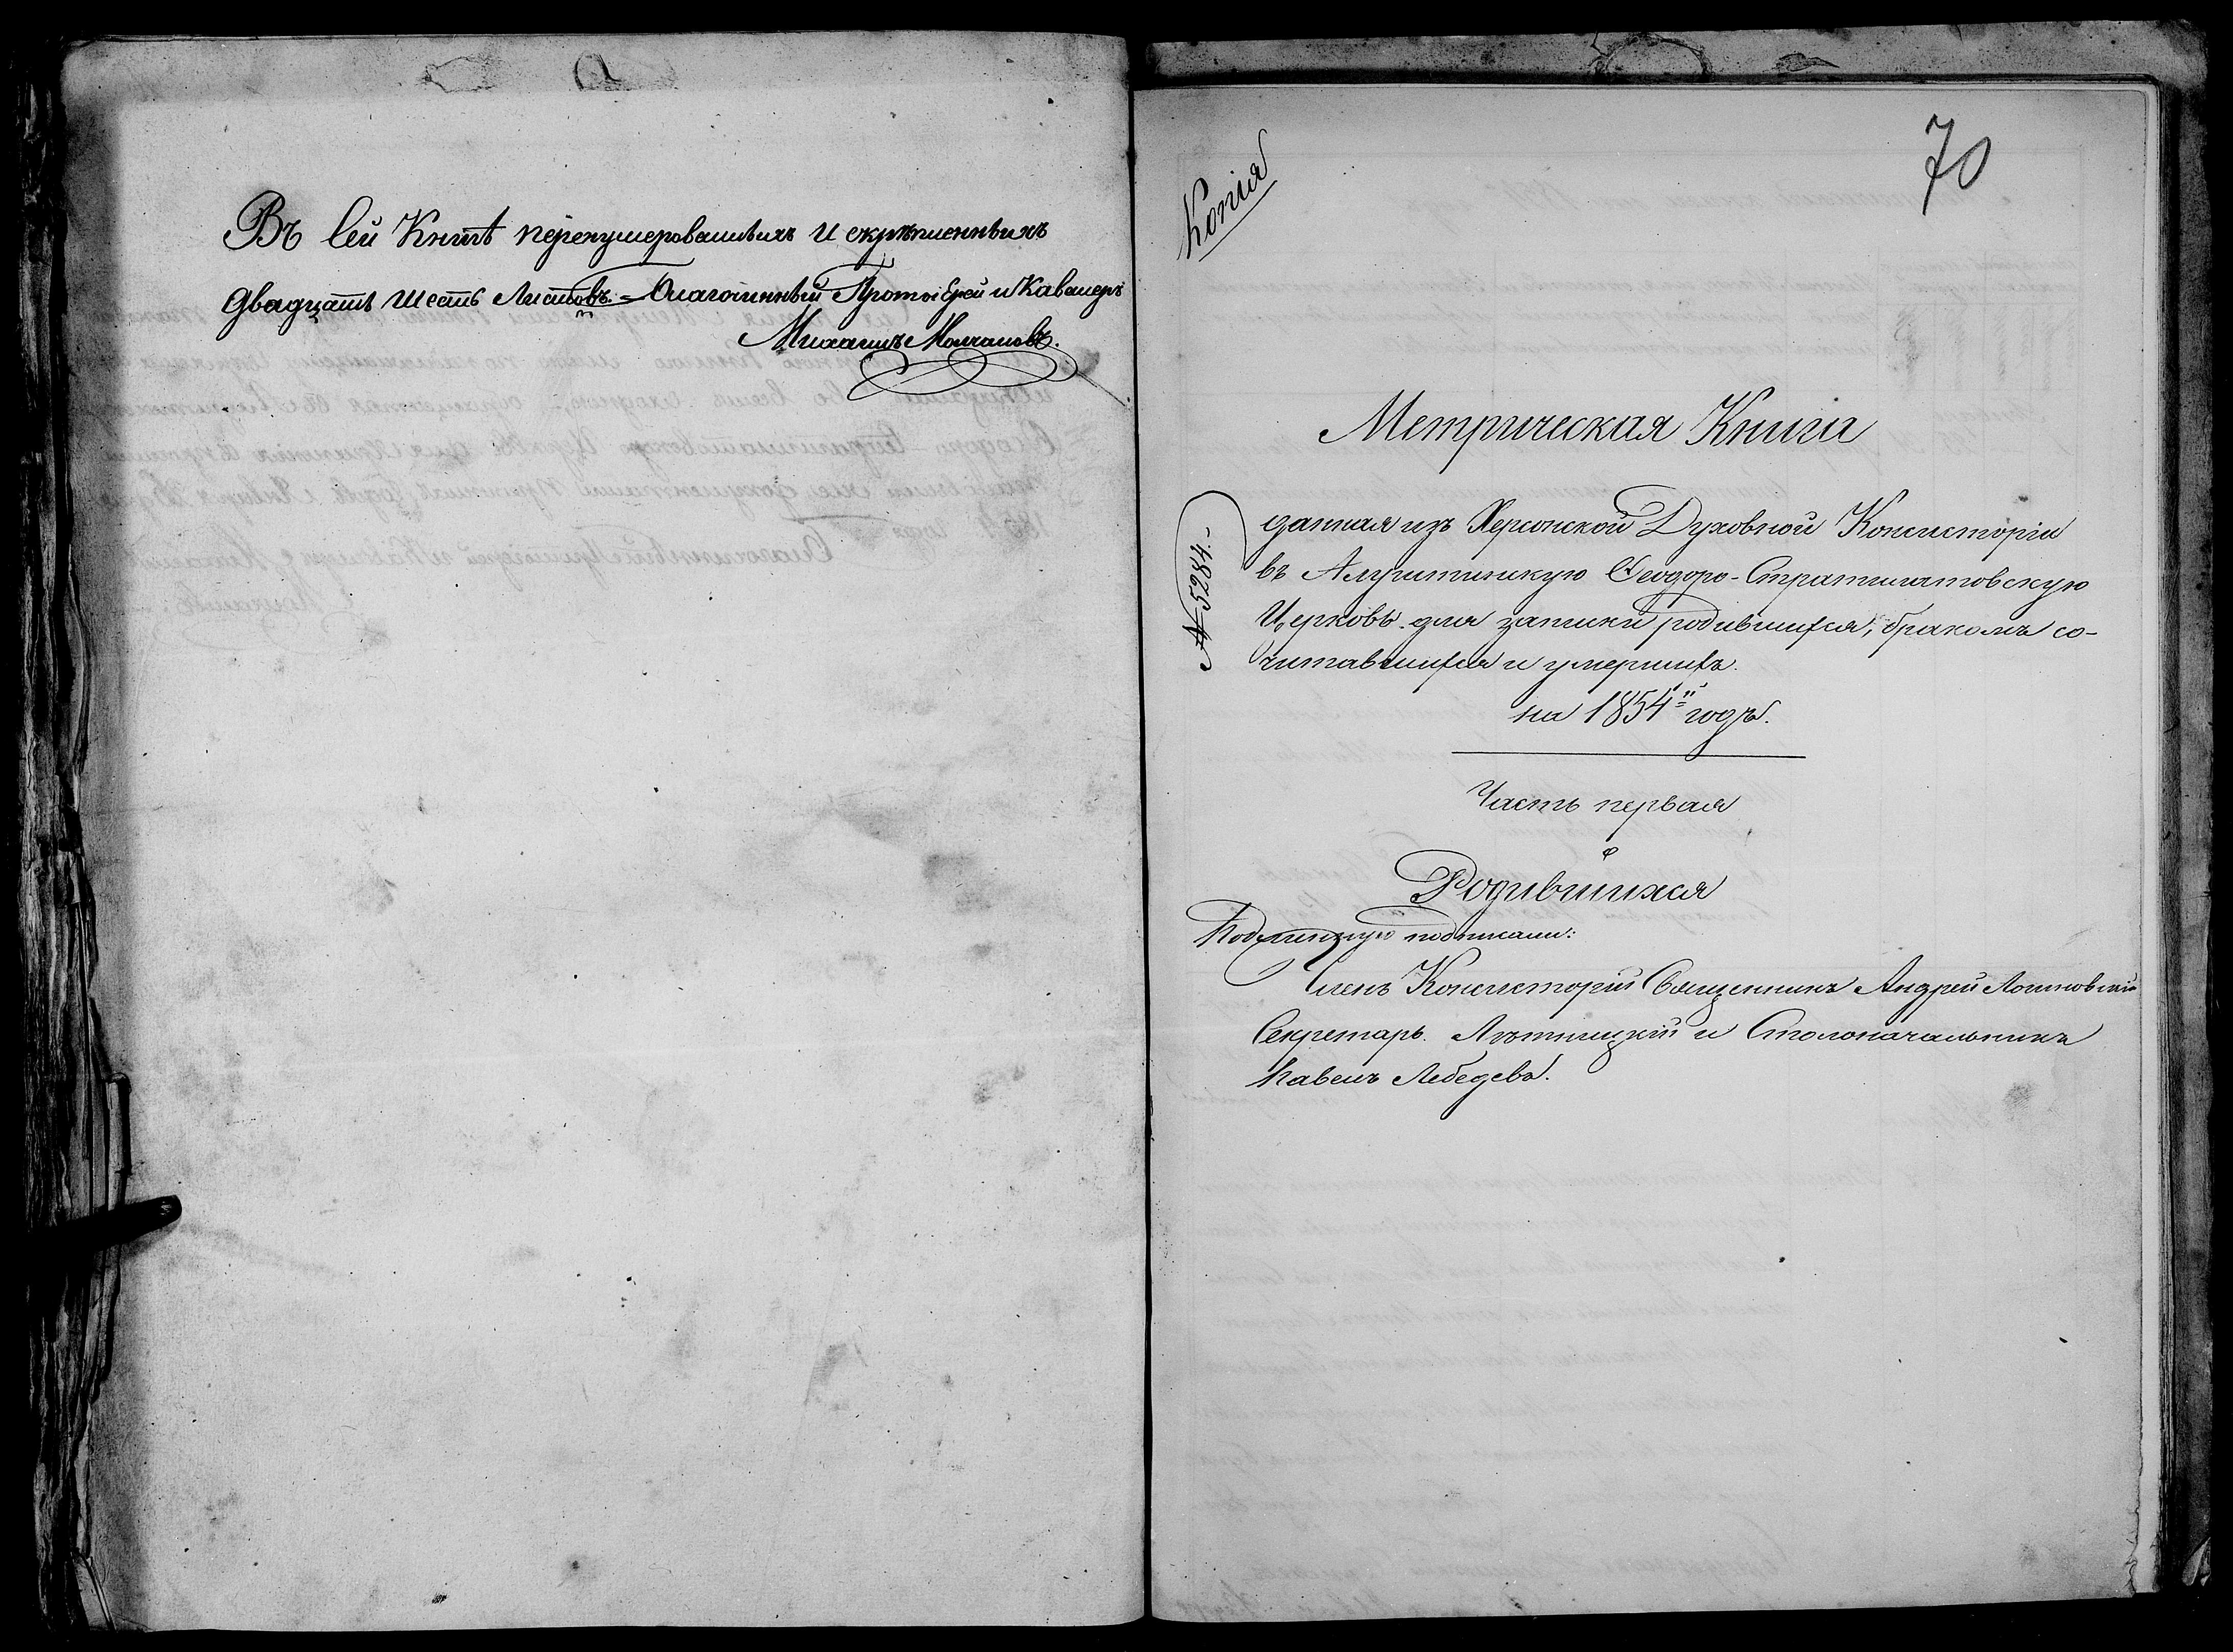 Въ сей Книгѣ перенумерованныхъ и скрѣпленныхъ
двадцать шесть Листовъ. – Благочинный Протоіерей и Кавалеръ
Михаилъ Молчановъ.
Копія
70
Метрическая Книга
№ 5284.
данная изъ Херсонской Духовной Консисторіи
въ Алуштинскую Ѳеодоро-Стратилатовскую
Церковь для записки родившихся, бракомъ со-
читавшихся и умершихъ.
на 1854й годъ.
Часть первая
О
Родившихся
Подлинную подписали:
Членъ Консисторіи Священникъ Андрей
Секретарь и Столоначальникъ
Павелъ Лебедевъ.